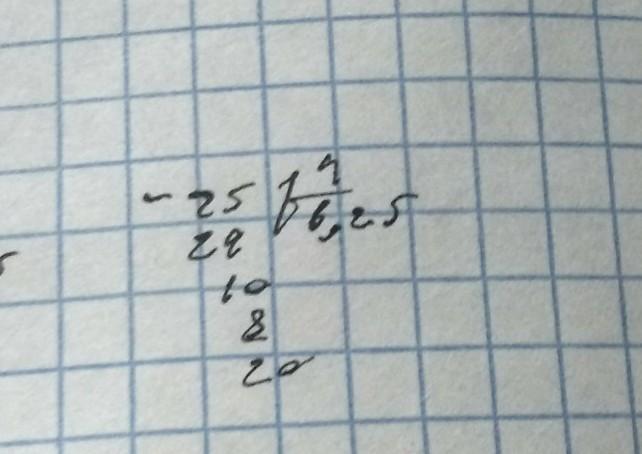 - 25 | 4
24 6,25
10
8
20